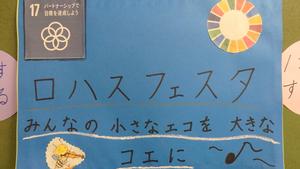 17 パートナーシップで
目標を達成しよう
ロハスフェスタ
みんなの 小さなエコを 大きな
コエに
する
す